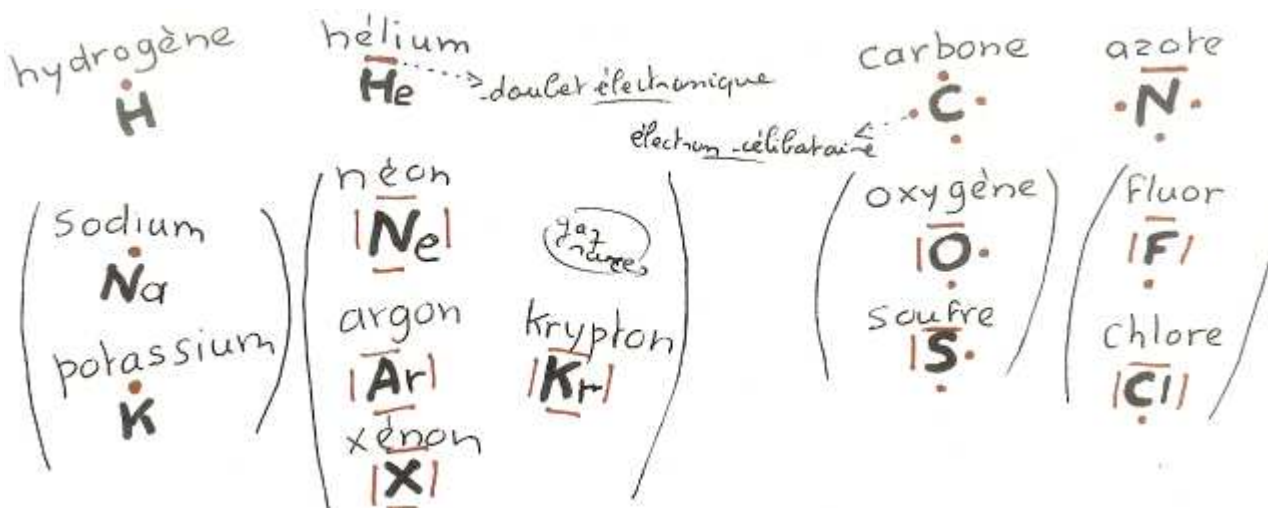 hydrogène
H
hélium
He
doublet électronique
carbone
C
électron célibataire
azote
N
sodium
Na
potassium
K
néon
Ne
gaz rares
argon
Ar
krypton
Kr
xénon
X
oxygène
O
soufre
S
fluor
F
chlore
Cl